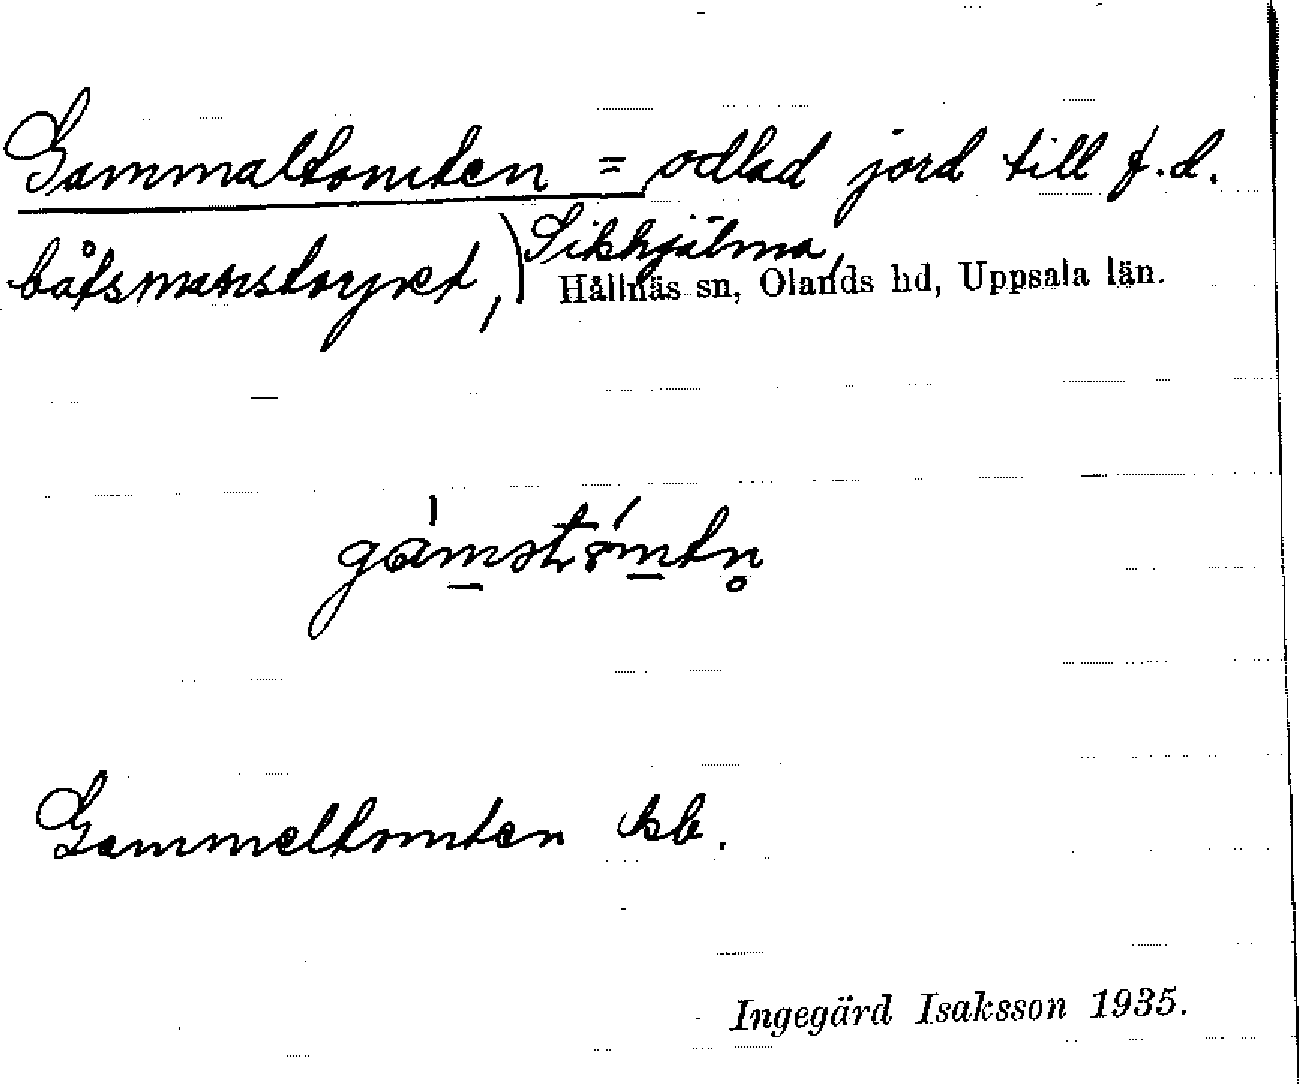 Gammaltomten = odlad jord till f.d.
båtsmanstorpet,) Sikhjälma,
Hållnäs sn, Olands hd, Uppsala län.
Gammeltomten kb.
Ingegärd Isaksson 1935.